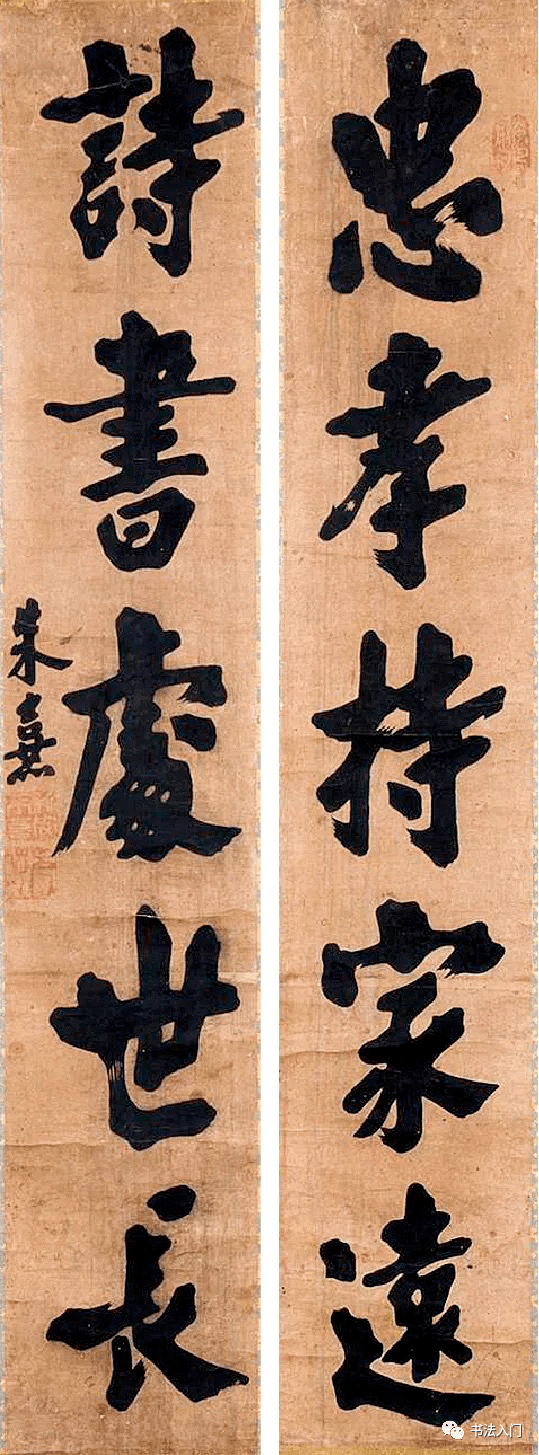 忠孝持家遠
詩書處世長
朱熹
书法入门